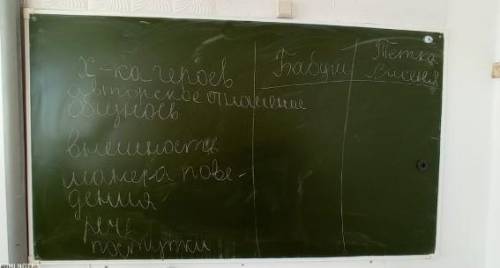 х-ка героев
Бабуш
Тётка
Васеня
авторское отношение
внешность
манера пове-
дения
речь
поступки